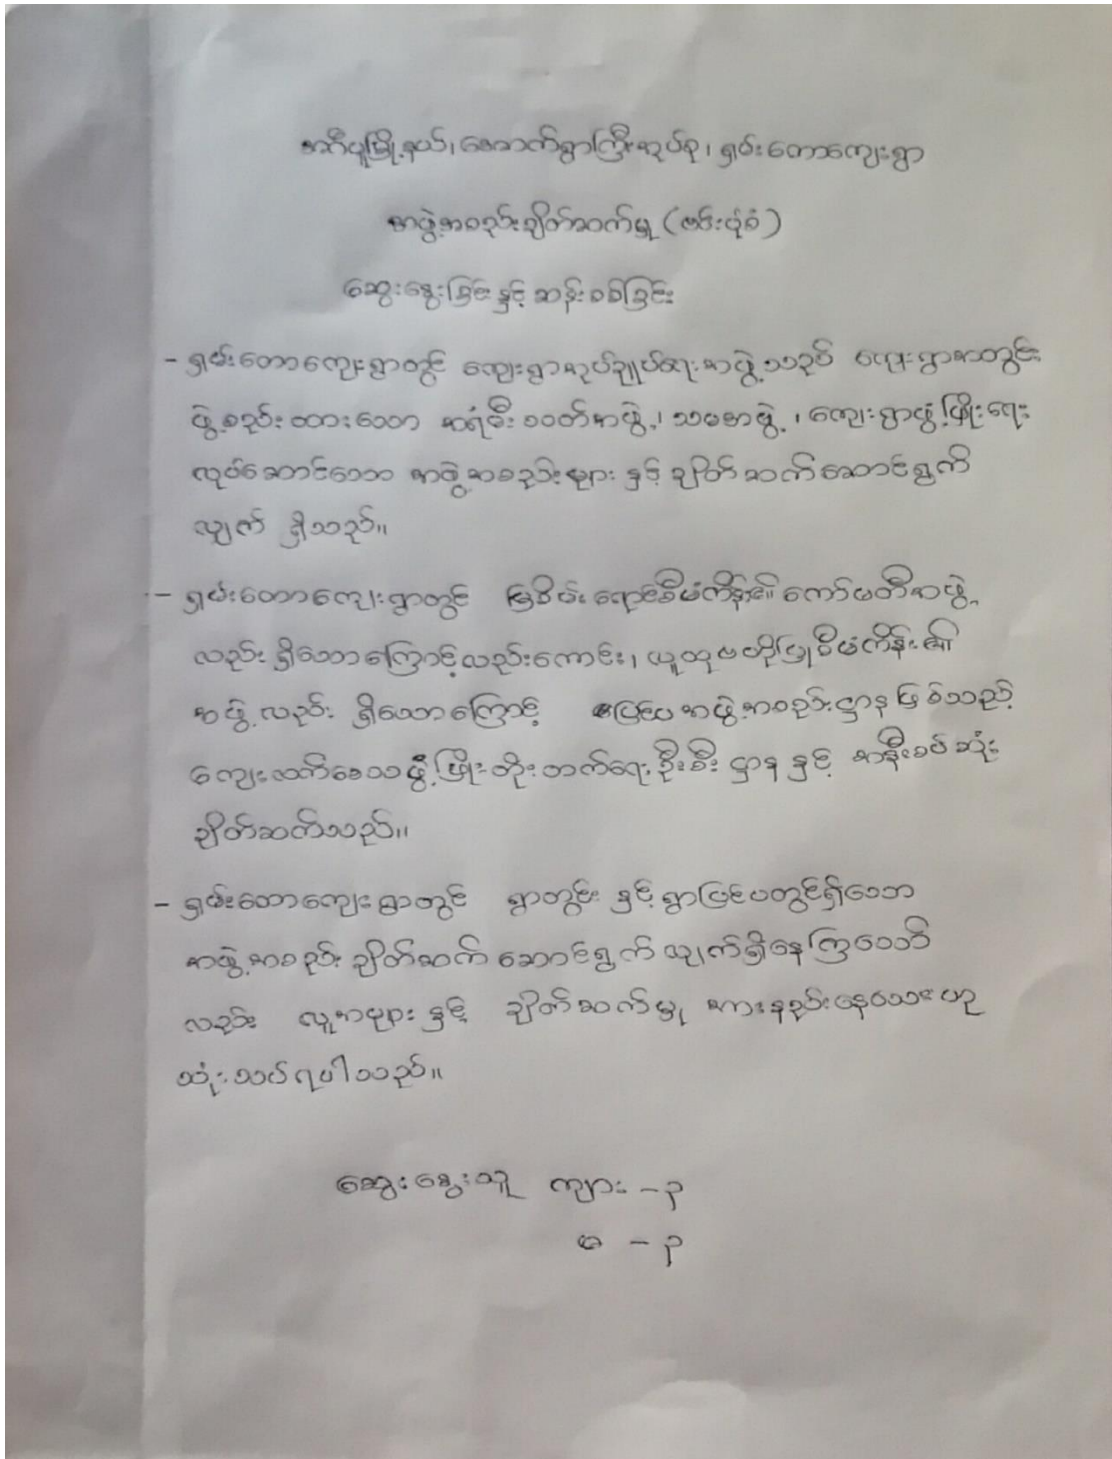 ငါန်းဇွန်မြို့နယ်၊အောက်ရွာကြီးအုပ်စု၊ ရှမ်းတောကျေးရွာ
အဖွဲ့အစည်းချိတ်ဆက်မှု (ဗင်းပုံစံ)
ဆွေးနွေးခြင်း နှင့် ဆန်းစစ်ခြင်း
- ရှမ်းတောကျေးရွာတွင် ကျေးရွာအုပ်ချုပ်ရေးအဖွဲ့သည် ကျေးရွာအတွင်း
ဖွဲ့စည်းထားသော အရံမီးသတ်အဖွဲ့၊ သမဖွဲ့၊ ကျေးရွာဖွံ့ဖြိုးရေး
လုပ်ဆောင်သော အဖွဲ့အစည်းများ နှင့် ချိတ်ဆက်ဆောင်ရွက်
လျှက် ရှိသည်။
- ရှမ်းတောကျေးရွာတွင် မြစိမ်းရောင်စီမံကိန်း၏ ကော်မတီအဖွဲ့
လည်း ရှိသောကြောင့်လည်းကောင်း၊ ယူဗဟိုပြုစီမံကိန်း၏
အဖွဲ့လည်း ရှိသောကြောင့် ပြင်ပအဖွဲ့အစည်းဌာနဖြစ်သည့်
ကျေးလက်ဒေသဖွံ့ဖြိုးတိုးတက်ရေးဦးစီးဌာန နှင့် အနီးစပ်ဆုံး
ချိတ်ဆက်သည်။
- ရှမ်းတောကျေးရွာတွင် ရွာတွင်း နှင့် ရွာပြင်ပတွင်ရှိသော
အဖွဲ့အစည်း ချိတ်ဆက် ဆောင်ရွက်လျှက်ရှိနေကြသော်
လည်း လူအများ နှင့် ချိတ်ဆက်မှု အားနည်းနေသေးဟု
သုံးသပ်ရပါသည်။
ဆွေးနွေးသူ ကျား - ၃
မ - ၃